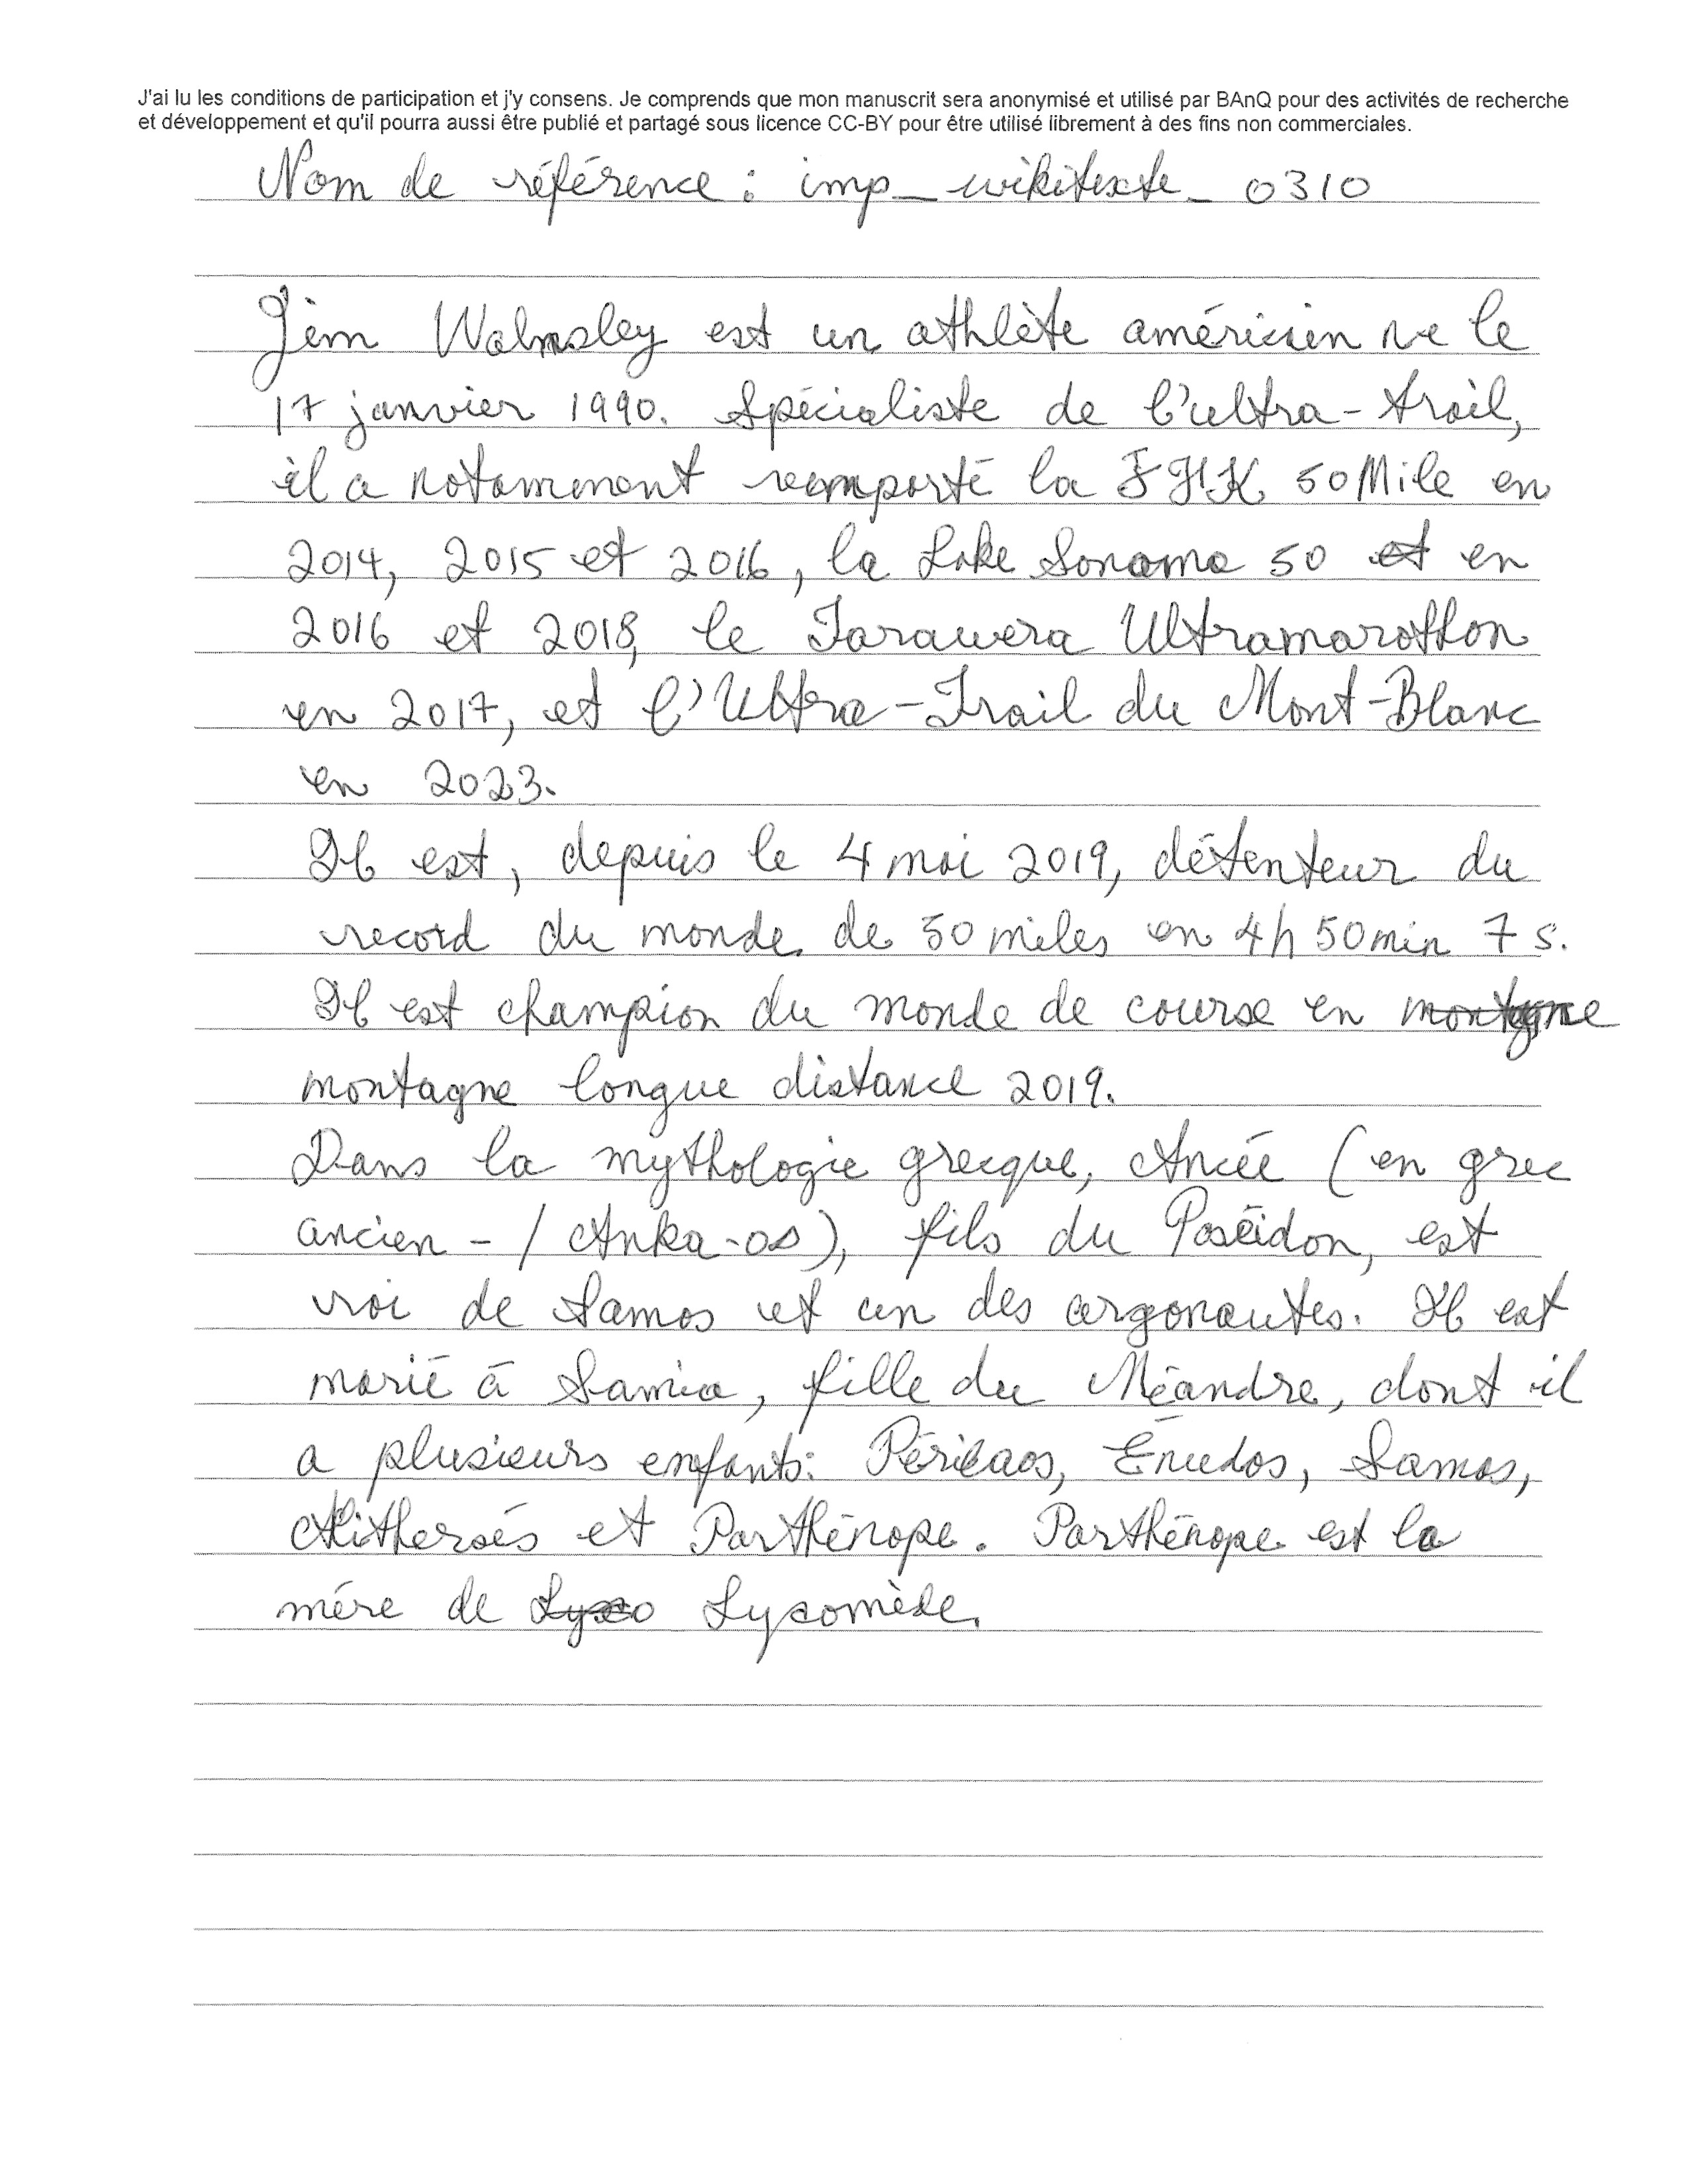 J'ai lu les conditions de participation et j'y consens. Je comprends que mon manuscrit sera anonymisé et utilisé par BAnQ pour des activités de recherche
et développement et qu'il pourra aussi être publié et partagé sous licence CC-BY pour être utilisé librement à des fins non commerciales.
Nom de référence : imp_wikitexte_0310
Jim Walmsley est un athlète américien ne le
17 janvier 1990. Spécialiste de l'ultra-trail,
il a notamment remporté la JFK 50 Mile en
2014, 2015 et 2016, la Lake Sonoma 50 et en
2016 et 2018, le Tarawera Ultramarathon
en 2017, et l'Ultra-Trail du Mont-Blanc
en 2023.
Il est, depuis le 4 mai 2019, détenteur du
record du monde de 50 miles en 4h 50min 7 s.
Il est champion du monde de course en montagne
montagne longue distance 2019.
Dans la mythologie grecque, Ancée (en grec
ancien - / Anka-os), fils du Poséidon, est
roi de Samos et un des argonautes. Il est
marié à Samia, fille du Méandre, dont il
a plusieurs enfants: Périlaos, Énudos, Samos,
Alithersés et Parthénope. Parthénope est la
mére de Lyco Lycomède.